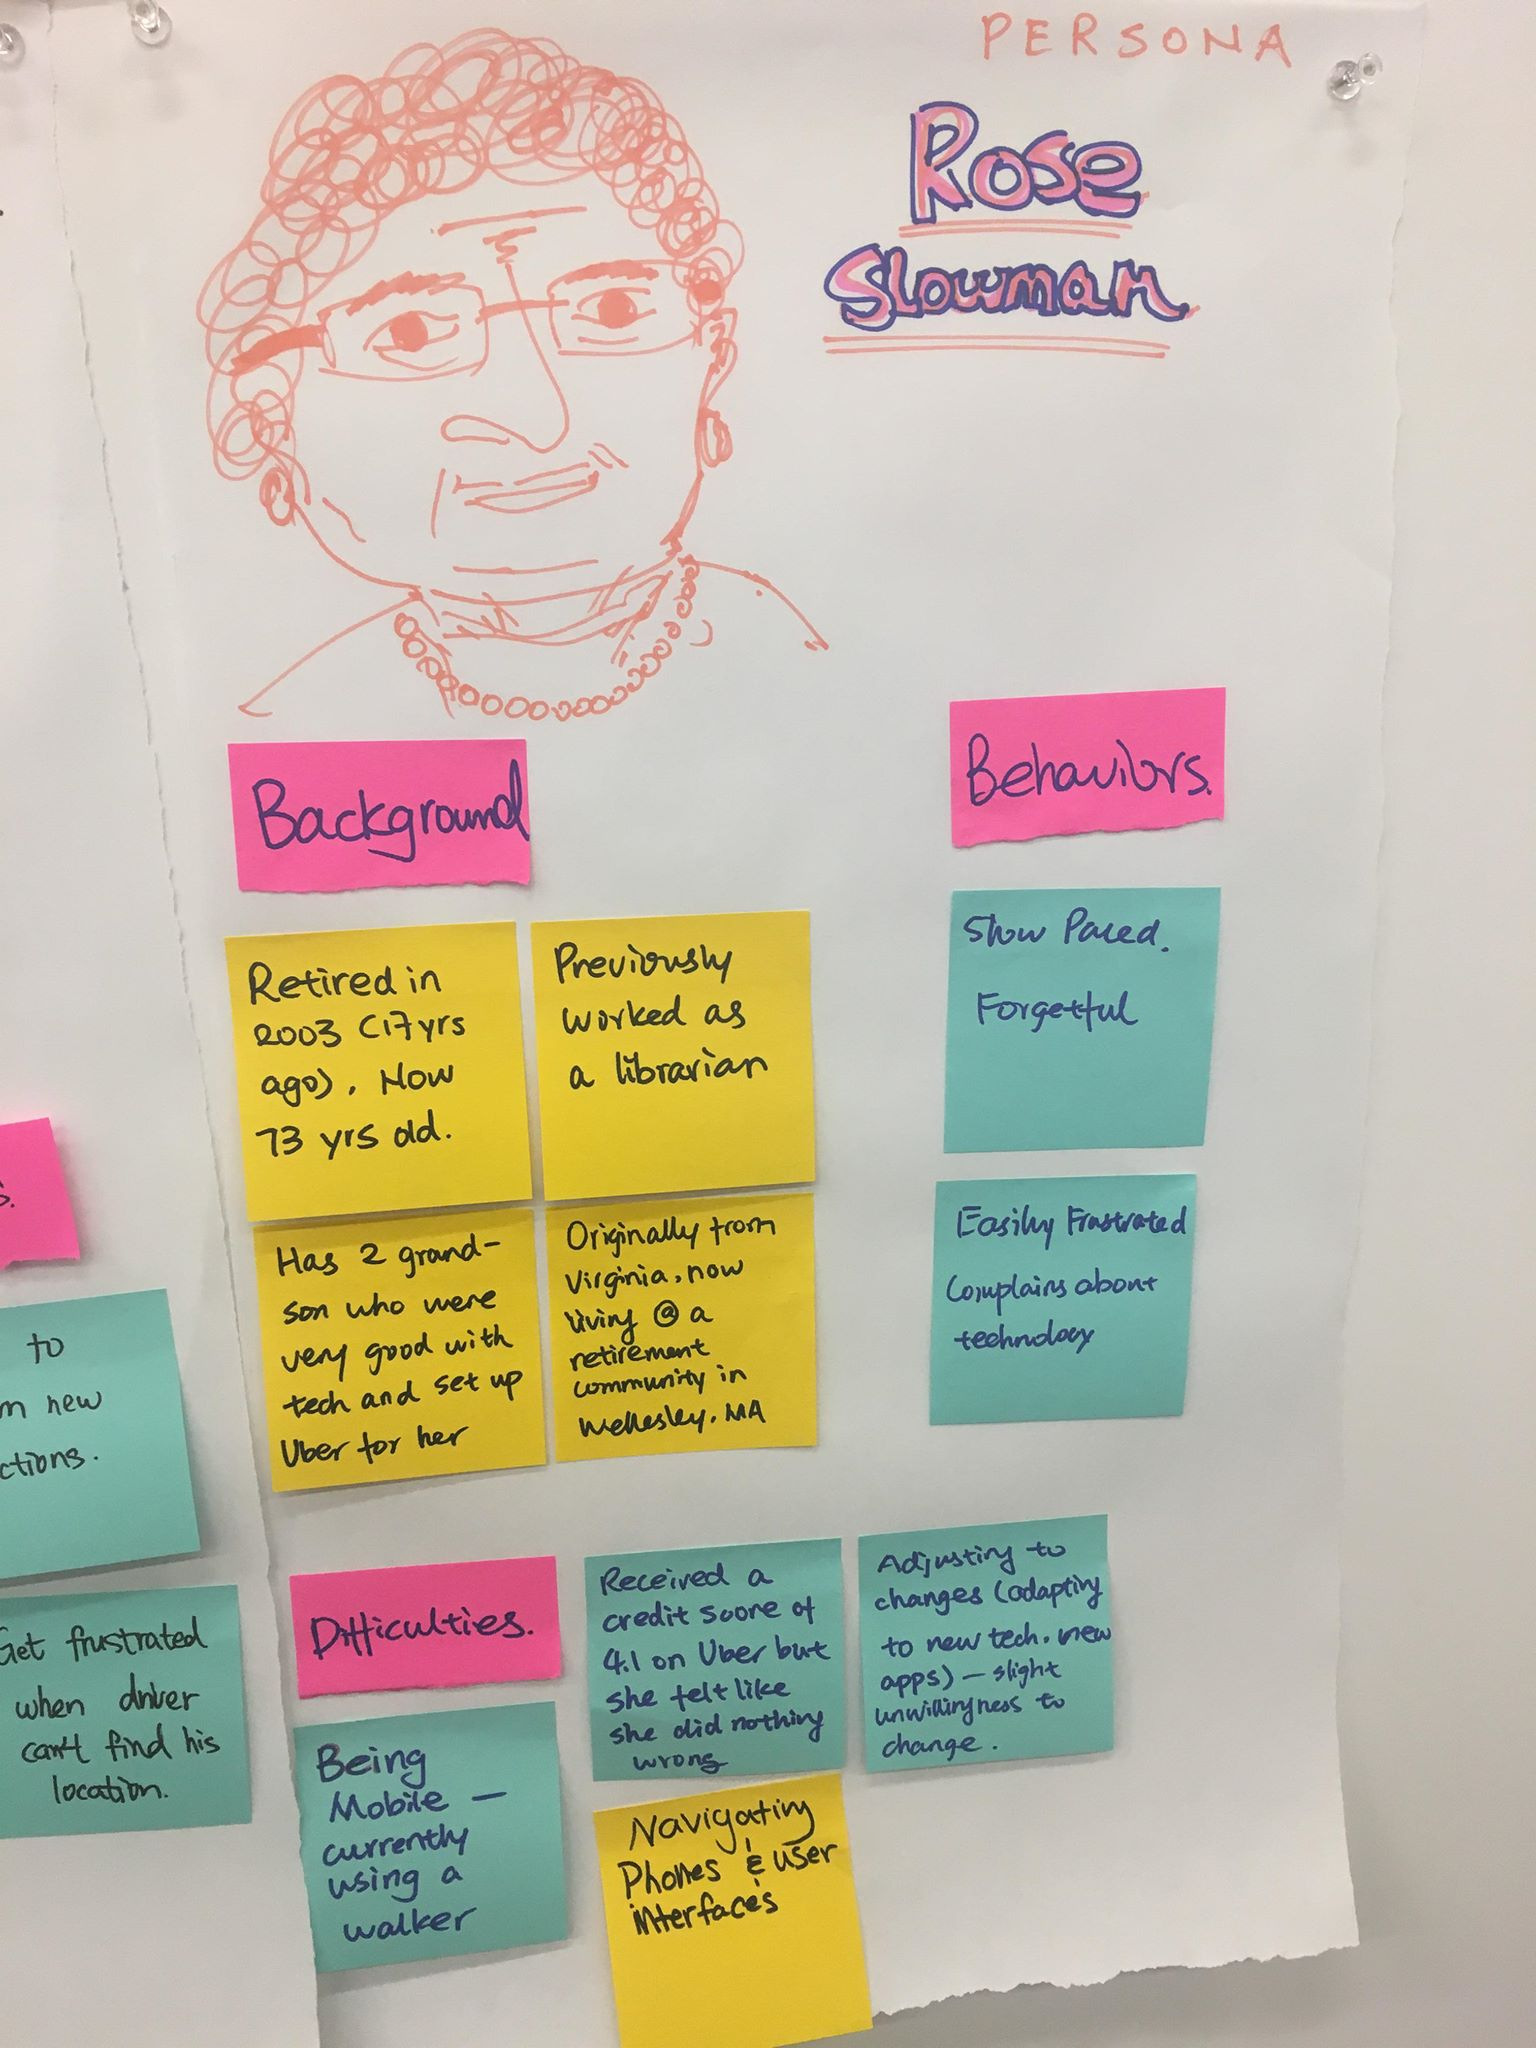 PERSONA
Rose
Slowman
Background
Retired in
2003 (17yrs
ago). Now
73 yrs old.
Previously
worked as
a librarian
Has 2 grand-
son who were
very good with
tech and set up
Uber for her
Originally from
Virginia, now
living @ a
retirement
community in
Wellesley, MA
Behaviors.
Slow Paced.
Forgetful
Easily Frustrated
Complains about
technology
Difficulties.
Being
Mobile —
currently
using a
walker
Received a
credit score of
4.1 on Uber but
she felt like
she did nothing
wrong
Adjusting to
changes (adapting
to new tech, new
apps) — slight
unwillingness to
change.
Navigating
Phones & user
interfaces
to
new
Get frustrated
when driver
can't find his
location.